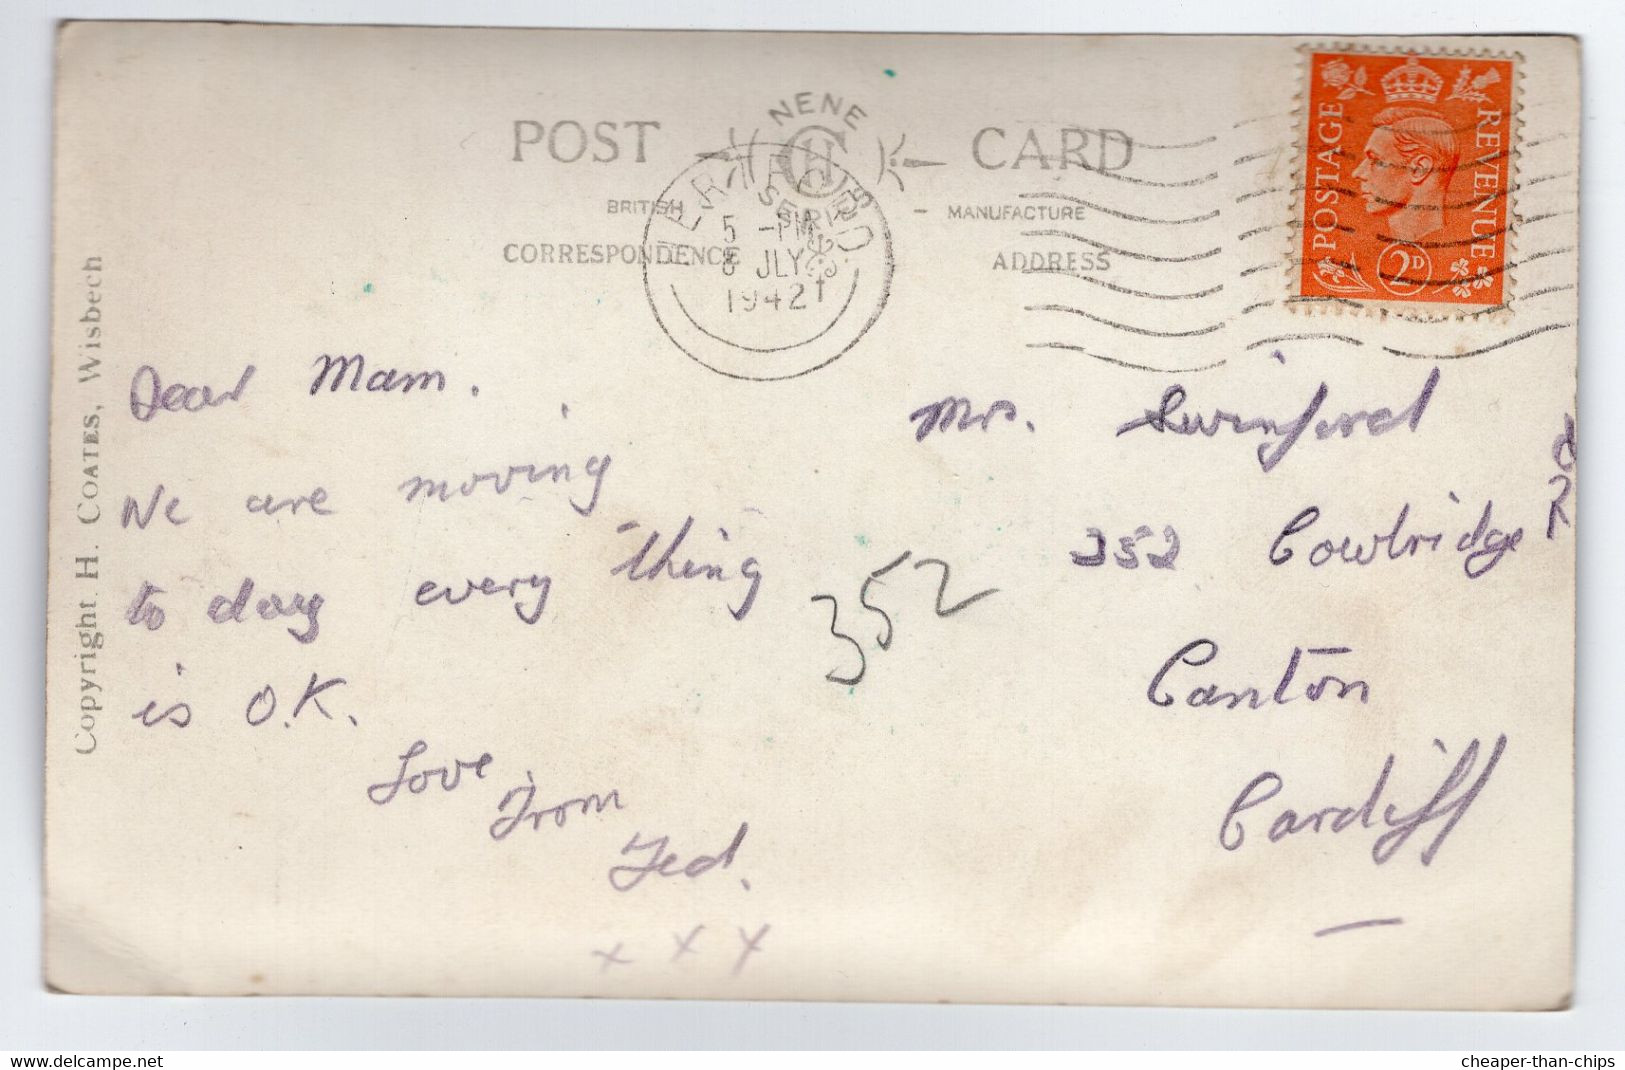 POST CARD
NENE
SERIES
BRITISH MANUFACTURE
CORRESPONDENCE ADDRESS
5 -PM
8 JLY
1942
POSTAGE REVENUE
2D
Copyright H. COATES, Wisbech
Dear Mam.
We are moving
to day every thing
is O.K.
Love
From
Ted.
x x x
352
Mrs. Swinford
352 Cowbridge Rd
Canton
Cardiff
cheaper-than-chips
https://www.delcampe.net